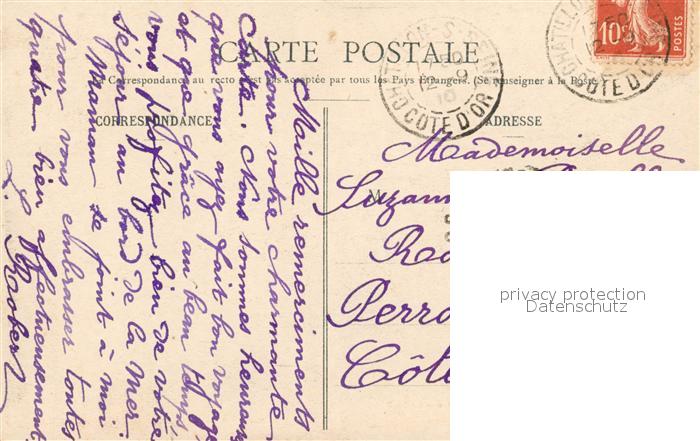 CARTE POSTALE
La Correspondance au recto n'est pas acceptée par tous les Pays Étrangers. (Se renseigner à la Poste)
CORRESPONDANCE
ADRESSE
Maille remerciments
pour votre charmante
Carte. Nous sommes heureux
que vous ayez fait bon voyage
et que grâce au beau temps
vous profitez bien de votre
séjour au bord de la Mer.
Maman se joint à moi
pour vous embrasser toutes
quatre bien affectueusement.
L. Robert
Mademoiselle
Perro
Côt
CÔTE D'OR
10c
POSTES
CHATILLON
CÔTE D'OR
privacy protection
Datenschutz